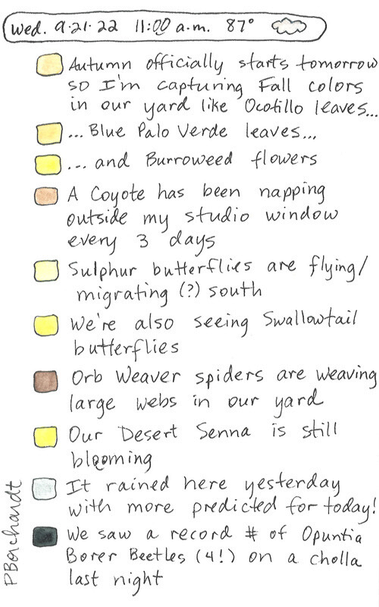 Wed. 9.21.22 11:00 a.m. 87°
Autumn officially starts tomorrow
so I'm capturing Fall colors
in our yard like Ocotillo leaves...
...Blue Palo Verde leaves...
... and Burroweed flowers
A Coyote has been napping
outside my studio window
every 3 days
Sulphur butterflies are flying/
migrating (?) south
We're also seeing Swallowtail
butterflies
Orb Weaver spiders are weaving
large webs in our yard
Our Desert Senna is still
blooming
It rained here yesterday
with more predicted for today!
We saw a record # of Opuntia
Borer Beetles (4!) on a cholla
last night
PBorchardt